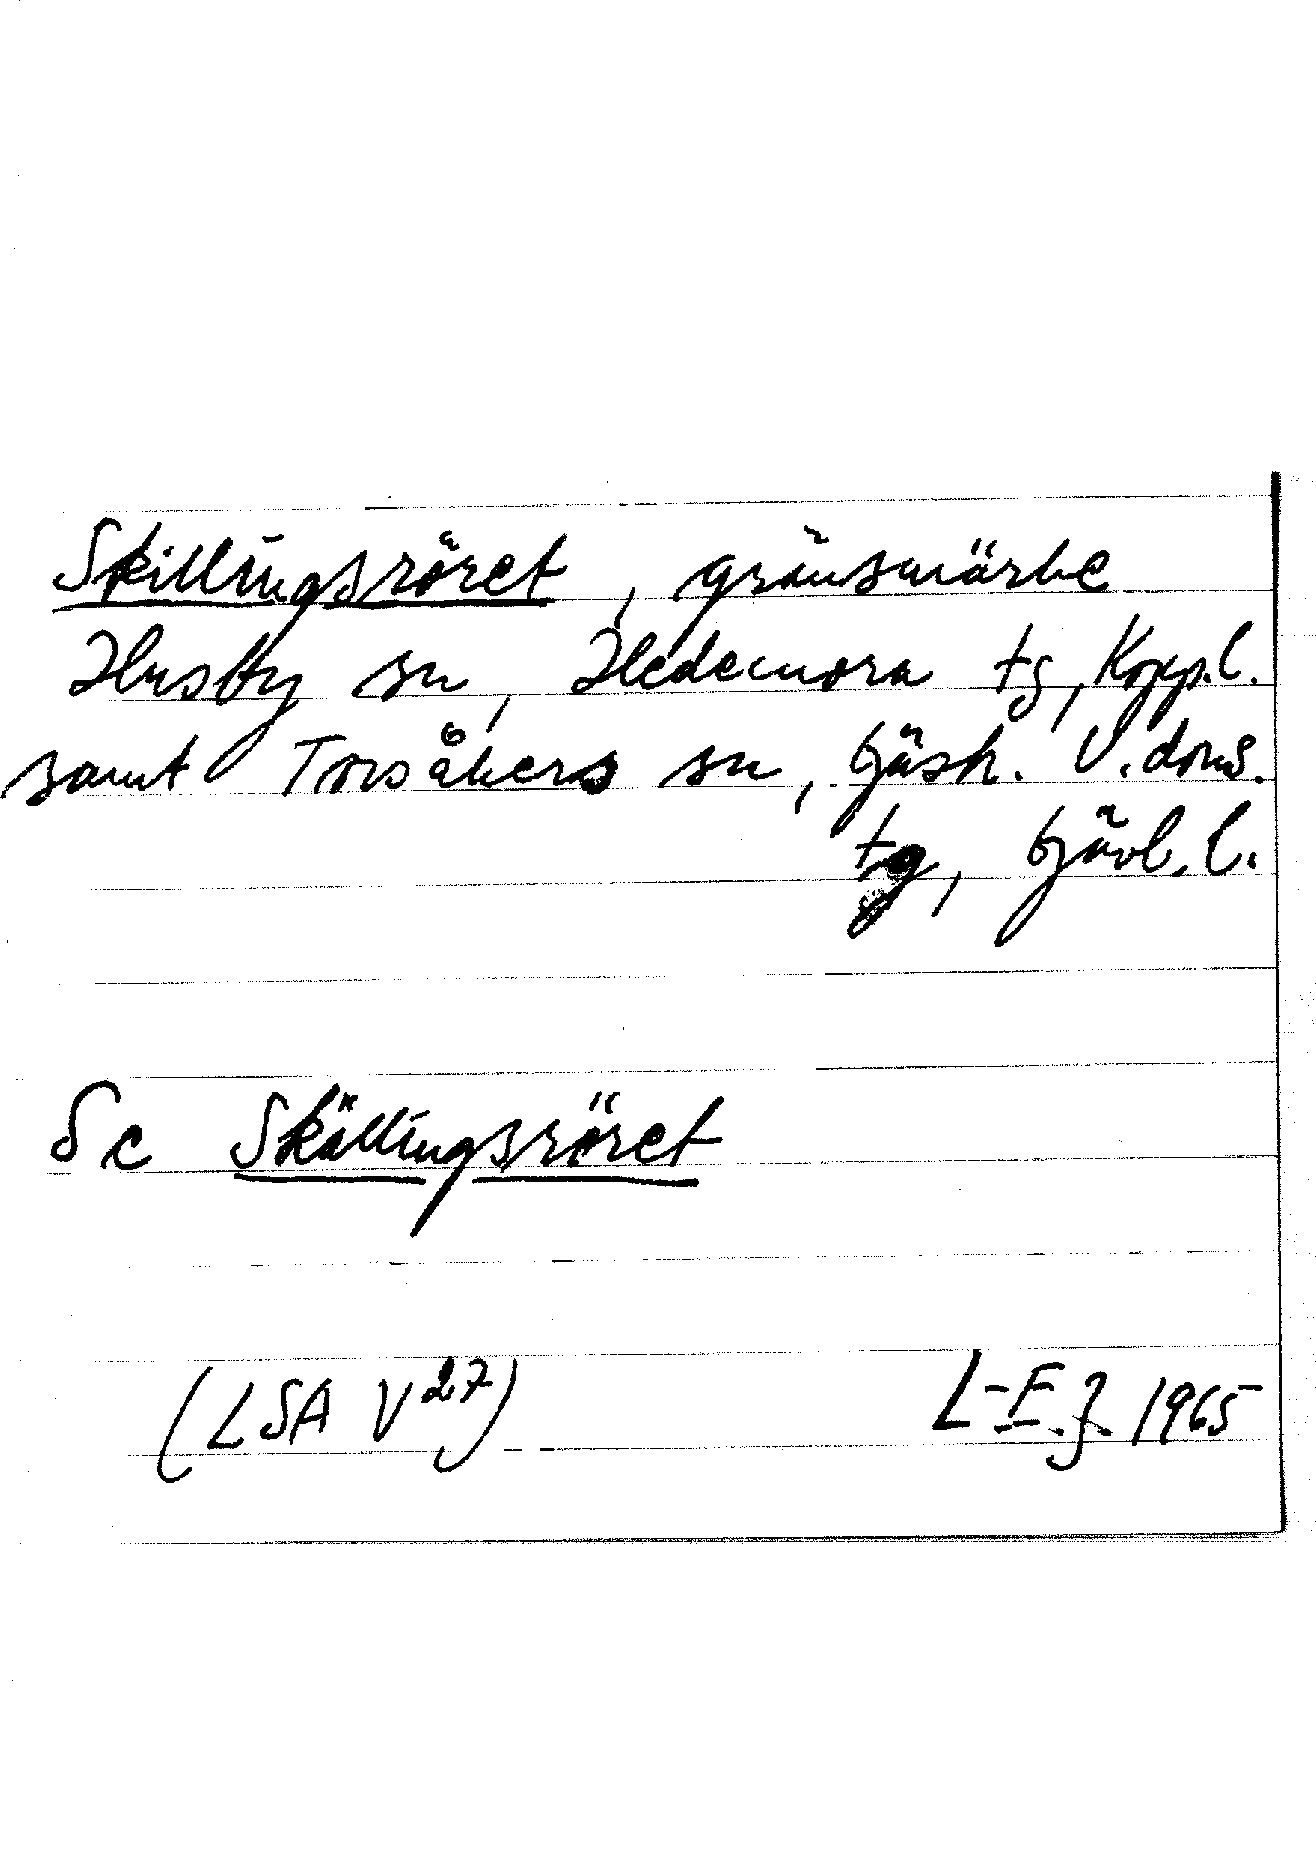 Skillingsröret, gränsmärke
Husby sn, Hedemora tg, Kopp.l.
samt Torsåkers sn, Gästr. V. doms.
tg, Gävl. l.
Se Skällingsröret
(LSA V27)
L-E. J. 1965